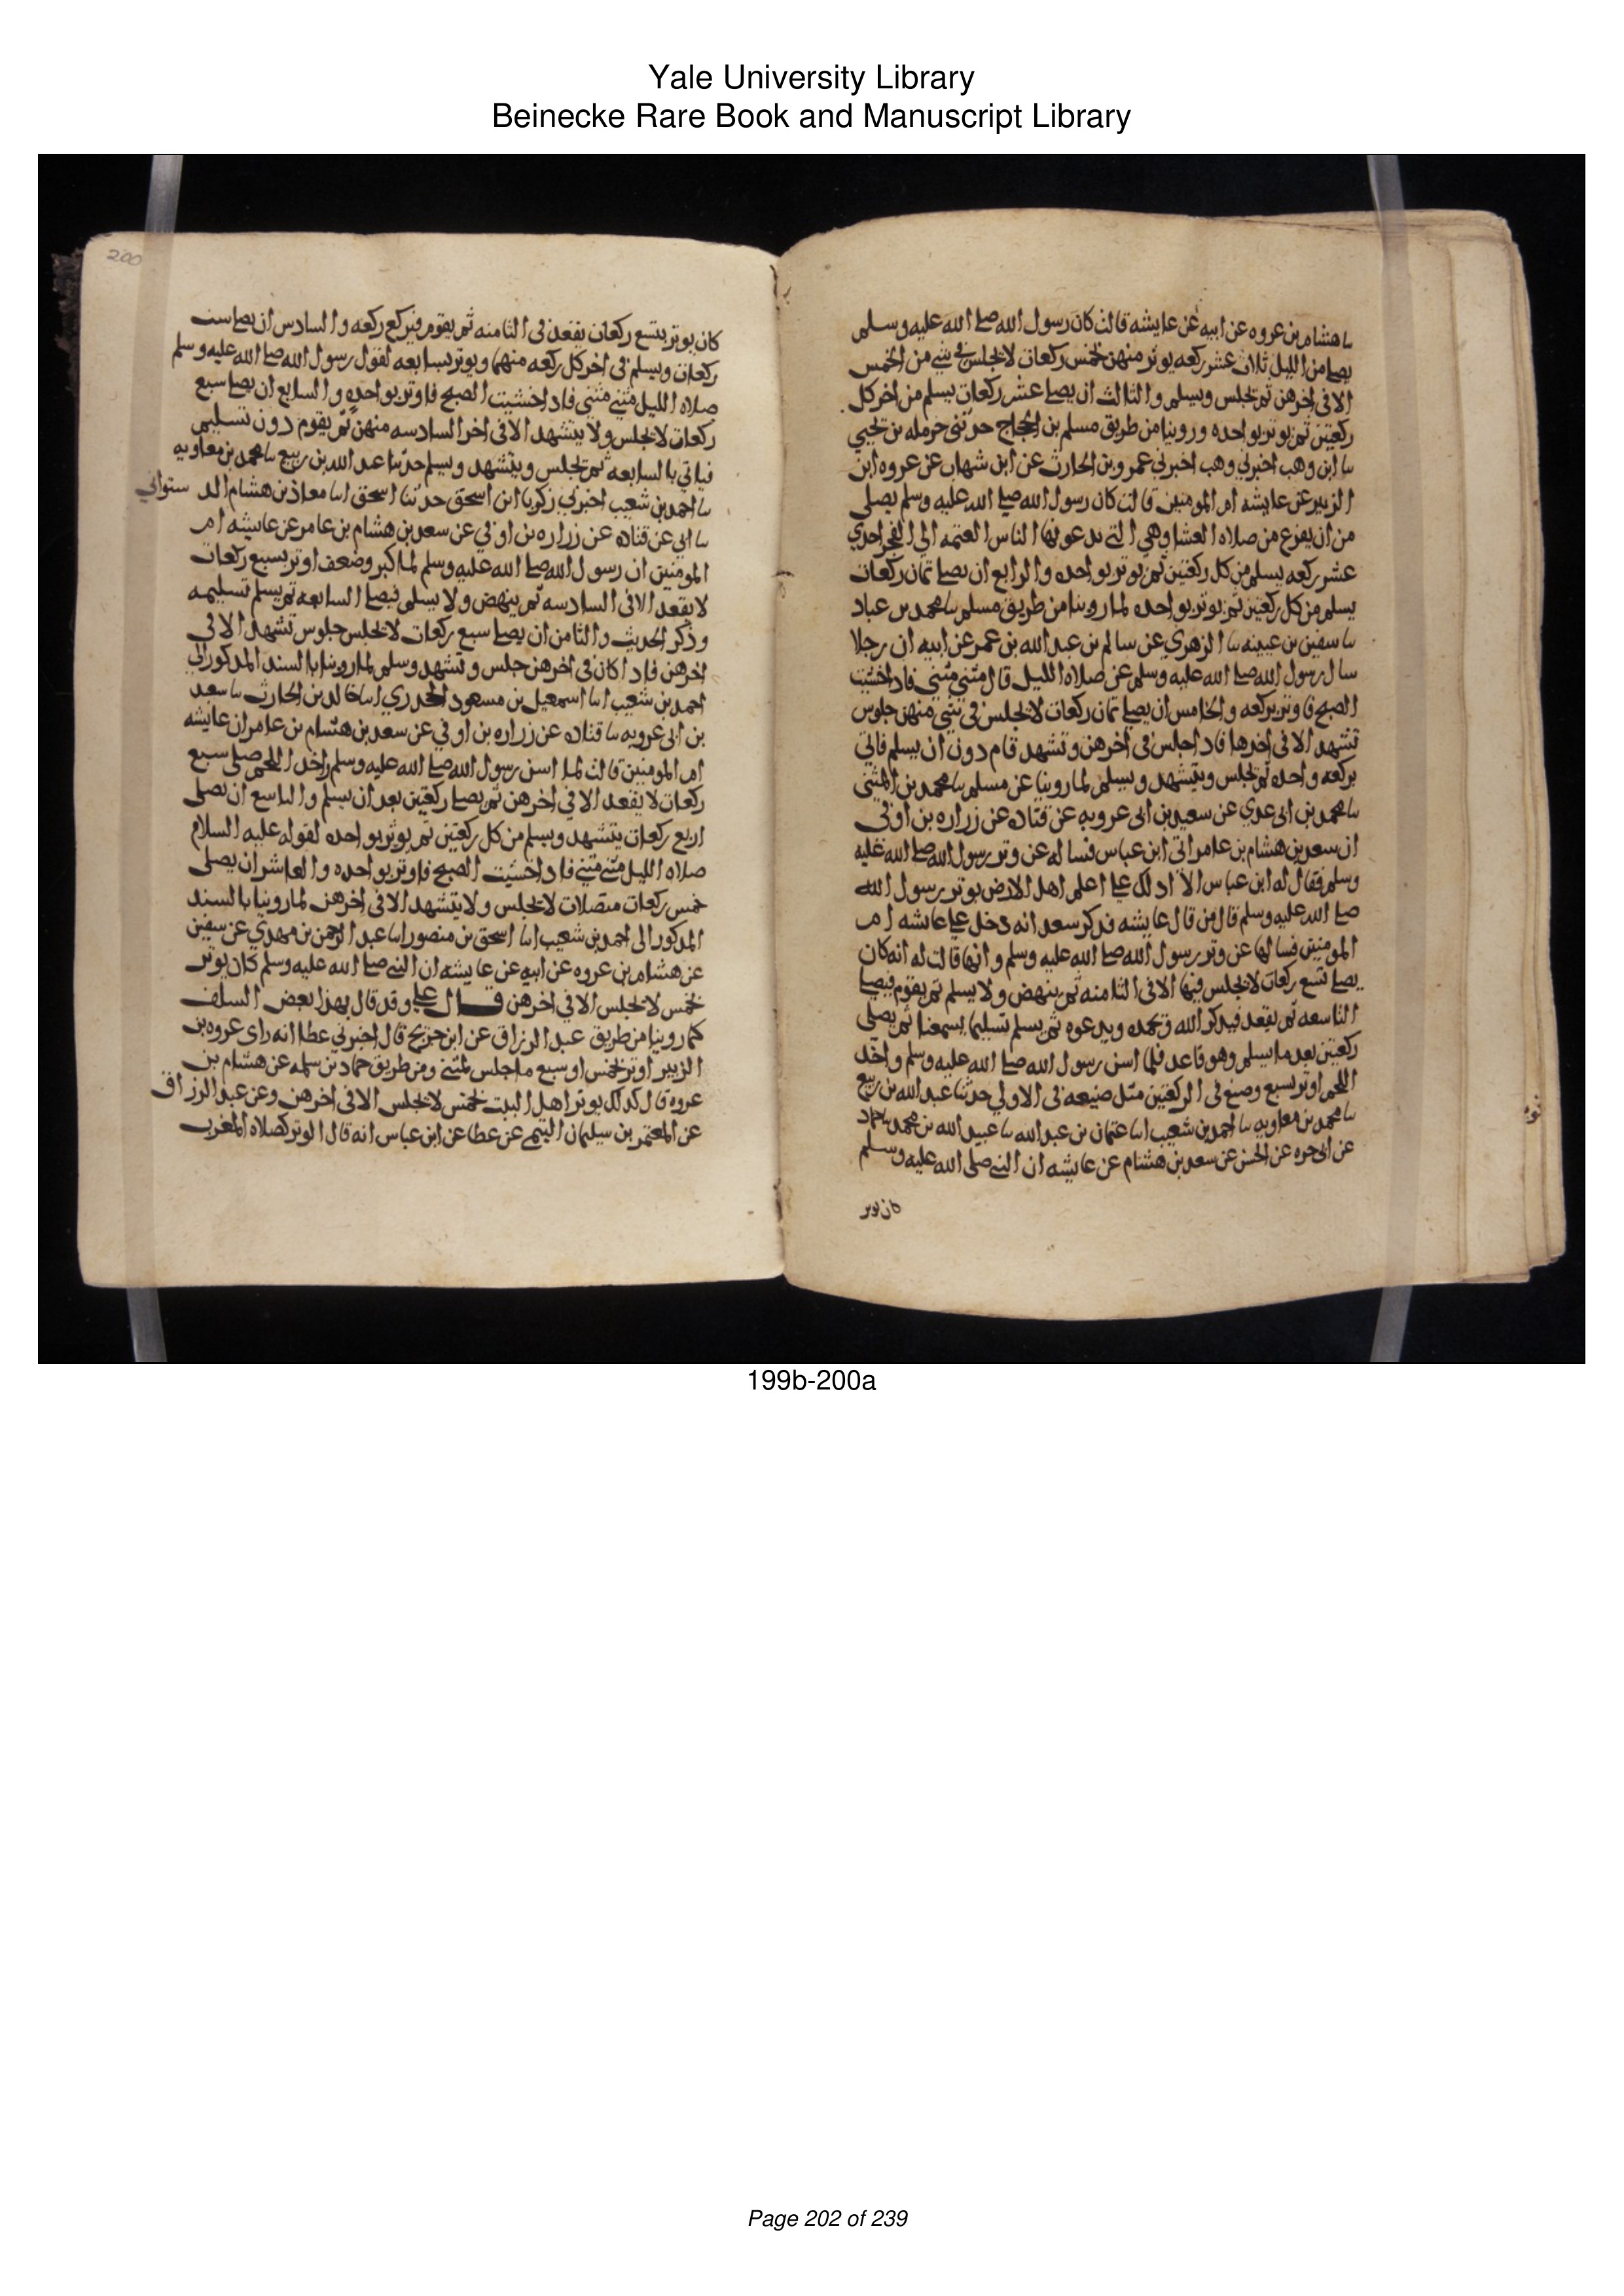 Yale University Library
Beinecke Rare Book and Manuscript Library
ىا هشام بن عروه عن ابيه عن عايشه قالت كان رسول الله صلى الله عليه وسلم
يصلى من الليل ثلاث عشر ركعه يوتر منهن بخمس ركعات لا يجلس فى شى من الخمس
الا فى اخرهن ثم يجلس ويسلم والثالث ان يصلى عشر ركعات يسلم من اخر كل
ركعتين ثم يوتر بواحده وروينا من طريق مسلم بن الحجاج حدثنى حرمله بن يحيى
ىا ابن وهب اخبرنى وهب اخبرنى عمرو بن الحارث عن ابن شهاب عن عروه ابن
الزبير عن عايشه ام المومنين قالت كان رسول الله صلى الله عليه وسلم يصلى
من ان يفرغ من صلاه العشا وهى التى يدعونها الناس العتمه الى الفجر احدى
عشر ركعه يسلم من كل ركعتين ثم يوتر بواحده والرابع ان يصلى ثمان ركعات
يسلم من كل ركعتين ثم يوتر بواحده لما روينا من طريق مسلم ىا محمد بن عباد
ىا سفين بن عيينه ىا الزهري عن سالم بن عبد الله بن عمر عن ابيه ان رجلا
سال رسول الله صلى الله عليه وسلم عن صلاه الليل قال مثنى مثنى فاذا خشيت
الصبح فاوتر بركعه والخامس ان يصلى ثمان ركعات لا يجلس فى شى منهن جلوس
تشهد الا فى اخرها فاذا جلس فى اخرهن وتشهد قام دون ان يسلم فاتى
بركعه واحده ثم يجلس ويتشهد ويسلم لما روينا عن مسلم ىا محمد بن المثنى
ىا محمد بن ابى عدي عن سعيد بن ابى عروبه عن قتاده عن زراره بن اوفى
ان سعد بن هشام بن عامر اتى ابن عباس فساله عن وتر رسول الله صلى الله عليه
وسلم فقال له ابن عباس الا ادلك على اعلم اهل الارض بوتر رسول الله
صلى الله عليه وسلم قال من قال عايشه فذكر سعد انه دخل على عايشه ام
المومنين فسالها عن وتر رسول الله صلى الله عليه وسلم وانها قالت له انه كان
يصلى تسع ركعات لا يجلس فيها الا فى الثامنه ثم ينهض ولا يسلم ثم يقوم فيصلى
التاسعه ثم يقعد فيذكر الله ويحمده ويدعوه ثم يسلم تسليما يسمعنا ثم يصلى
ركعتين بعد ما يسلم وهو قاعد فلما اسن رسول الله صلى الله عليه وسلم واخذ
اللحم اوتر بسبع وصنع فى الركعتين مثل صنيعه فى الاولى حدثنا عبد الله بن ربيع
ىا محمد بن معاويه ىا احمد بن شعيب اىا عثمان بن عبد الله ىا عبيد الله بن محمد ىا حماد
عن ابى حره عن الحسن عن سعد بن هشام عن عايشه ان النبي صلى الله عليه وسلم
كان يوتر
200
كان يوتر بتسع ركعات يقعد فى الثامنه ثم يقوم فيركع ركعه والسادس ان يصلى ست
ركعات ويسلم فى اخر كل ركعه منهما ويوتر بسابعه لقول رسول الله صلى الله عليه وسلم
صلاه الليل مثنى مثنى فاذا خشيت الصبح فاوتر بواحده والسابع ان يصلى سبع
ركعات لا يجلس ولا يتشهد الا فى اخر السادسه منهن ثم يقوم دون تسليم
فياتى بالسابعه ثم يجلس ويتشهد ويسلم حدثنا عبد الله بن ربيع ىا محمد بن معاويه
ىا احمد بن شعيب اخبرنى زكريا ابن اسحق حدثنا اسحق اىا معاذ بن هشام الدستوانى
ىا ابى عن قتاده عن زراره بن اوفى عن سعد بن هشام بن عامر عن عايشه ام
المومنين ان رسول الله صلى الله عليه وسلم لما كبر وضعف اوتر بسبع ركعات
لا يقعد الا فى السادسه ثم ينهض ولا يسلم فيصلى السابعه ثم يسلم تسليمه
وذكر الحديث والثامن ان يصلى سبع ركعات لا يجلس جلوس تشهد الا فى
اخرهن فاذا كان فى اخرهن جلس وتشهد وسلم لما روينا بالسند المذكور الى
احمد بن شعيب اىا اسمعيل بن مسعود الجحدري اىا خالد بن الحارث ىا سعد
بن ابى عروبه ىا قتاده عن زراره بن اوفى عن سعد بن هشام بن عامر ان عايشه
ام المومنين قالت لما اسن رسول الله صلى الله عليه وسلم واخذ اللحم صلى سبع
ركعات لا يقعد الا فى اخرهن ثم يصلى ركعتين بعد ان يسلم والتاسع ان يصلى
اربع ركعات يتشهد ويسلم من كل ركعتين ثم يوتر بواحده لقوله عليه السلام
صلاه الليل مثنى مثنى فاذا خشيت الصبح فاوتر بواحده والعاشر ان يصلى
خمس ركعات متصلات لا يجلس ولا يتشهد الا فى اخرهن لما روينا بالسند
المذكور الى احمد بن شعيب اىا اسحق بن منصور اىا عبد الرحمن بن مهدي عن سفين
عن هشام بن عروه عن ابيه عن عايشه ان النبي صلى الله عليه وسلم كان يوتر
بخمس لا يجلس الا فى اخرهن قال على وقد قال بهذا بعض السلف
كما روينا من طريق عبد الرزاق عن ابن جريج قال اخبرنى عطا انه راى عروه بن
الزبير اوتر بخمس او سبع ما جلس لمثنى ومن طريق حماد بن سلمه عن هشام بن
عروه قال كذلك يوتر اهل البيت بخمس لا يجلس الا فى اخرهن وعن عبد الرزاق
عن المعتمر بن سليمان التيمى عن عطا عن ابن عباس انه قال الوتر كصلاه المغرب
199b-200a
Page 202 of 239